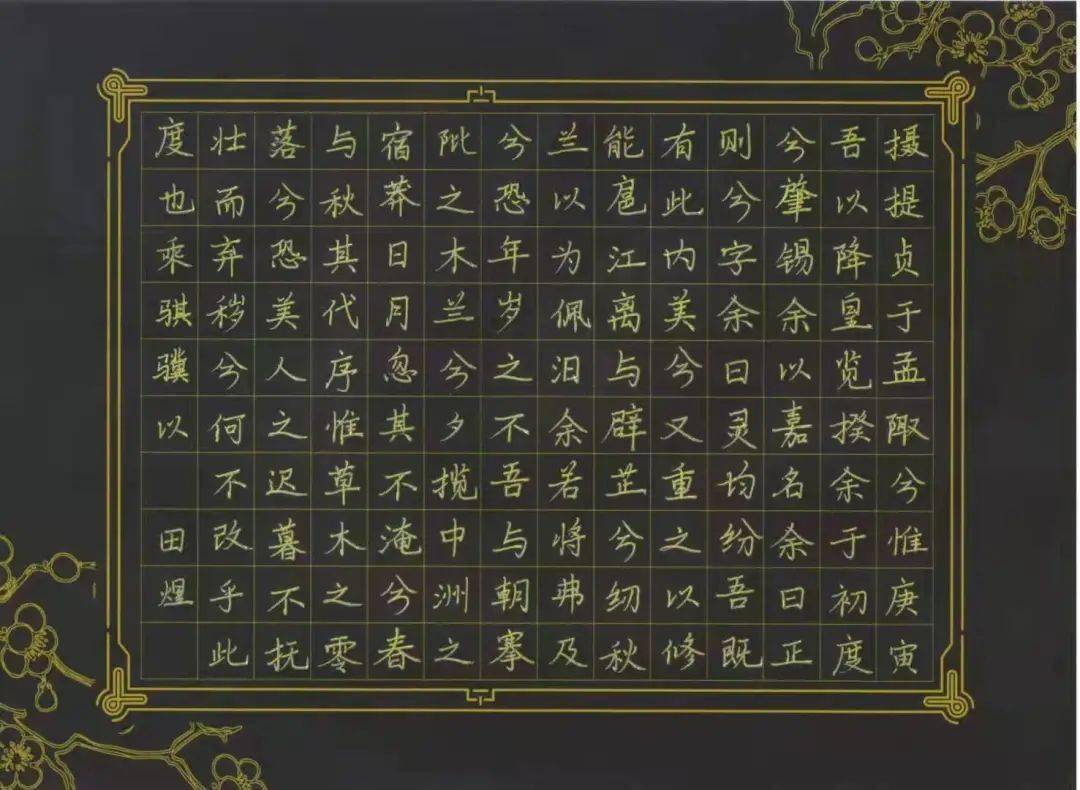 摄提贞于孟陬兮惟庚寅
吾以降皇览揆余于初度
兮肇锡余以嘉名余曰正
则兮字余曰灵均纷吾既
有此内美兮又重之以修
能扈江离与辟芷兮纫秋
兰以为佩汨余若将弗及
兮恐年岁之不吾与朝搴
阰之木兰兮夕揽中洲之
宿莽日月忽其不淹兮春
与秋其代序惟草木之零
落兮恐美人之迟暮不抚
壮而弃秽兮何不改乎此
度也乘骐骥以 田煜